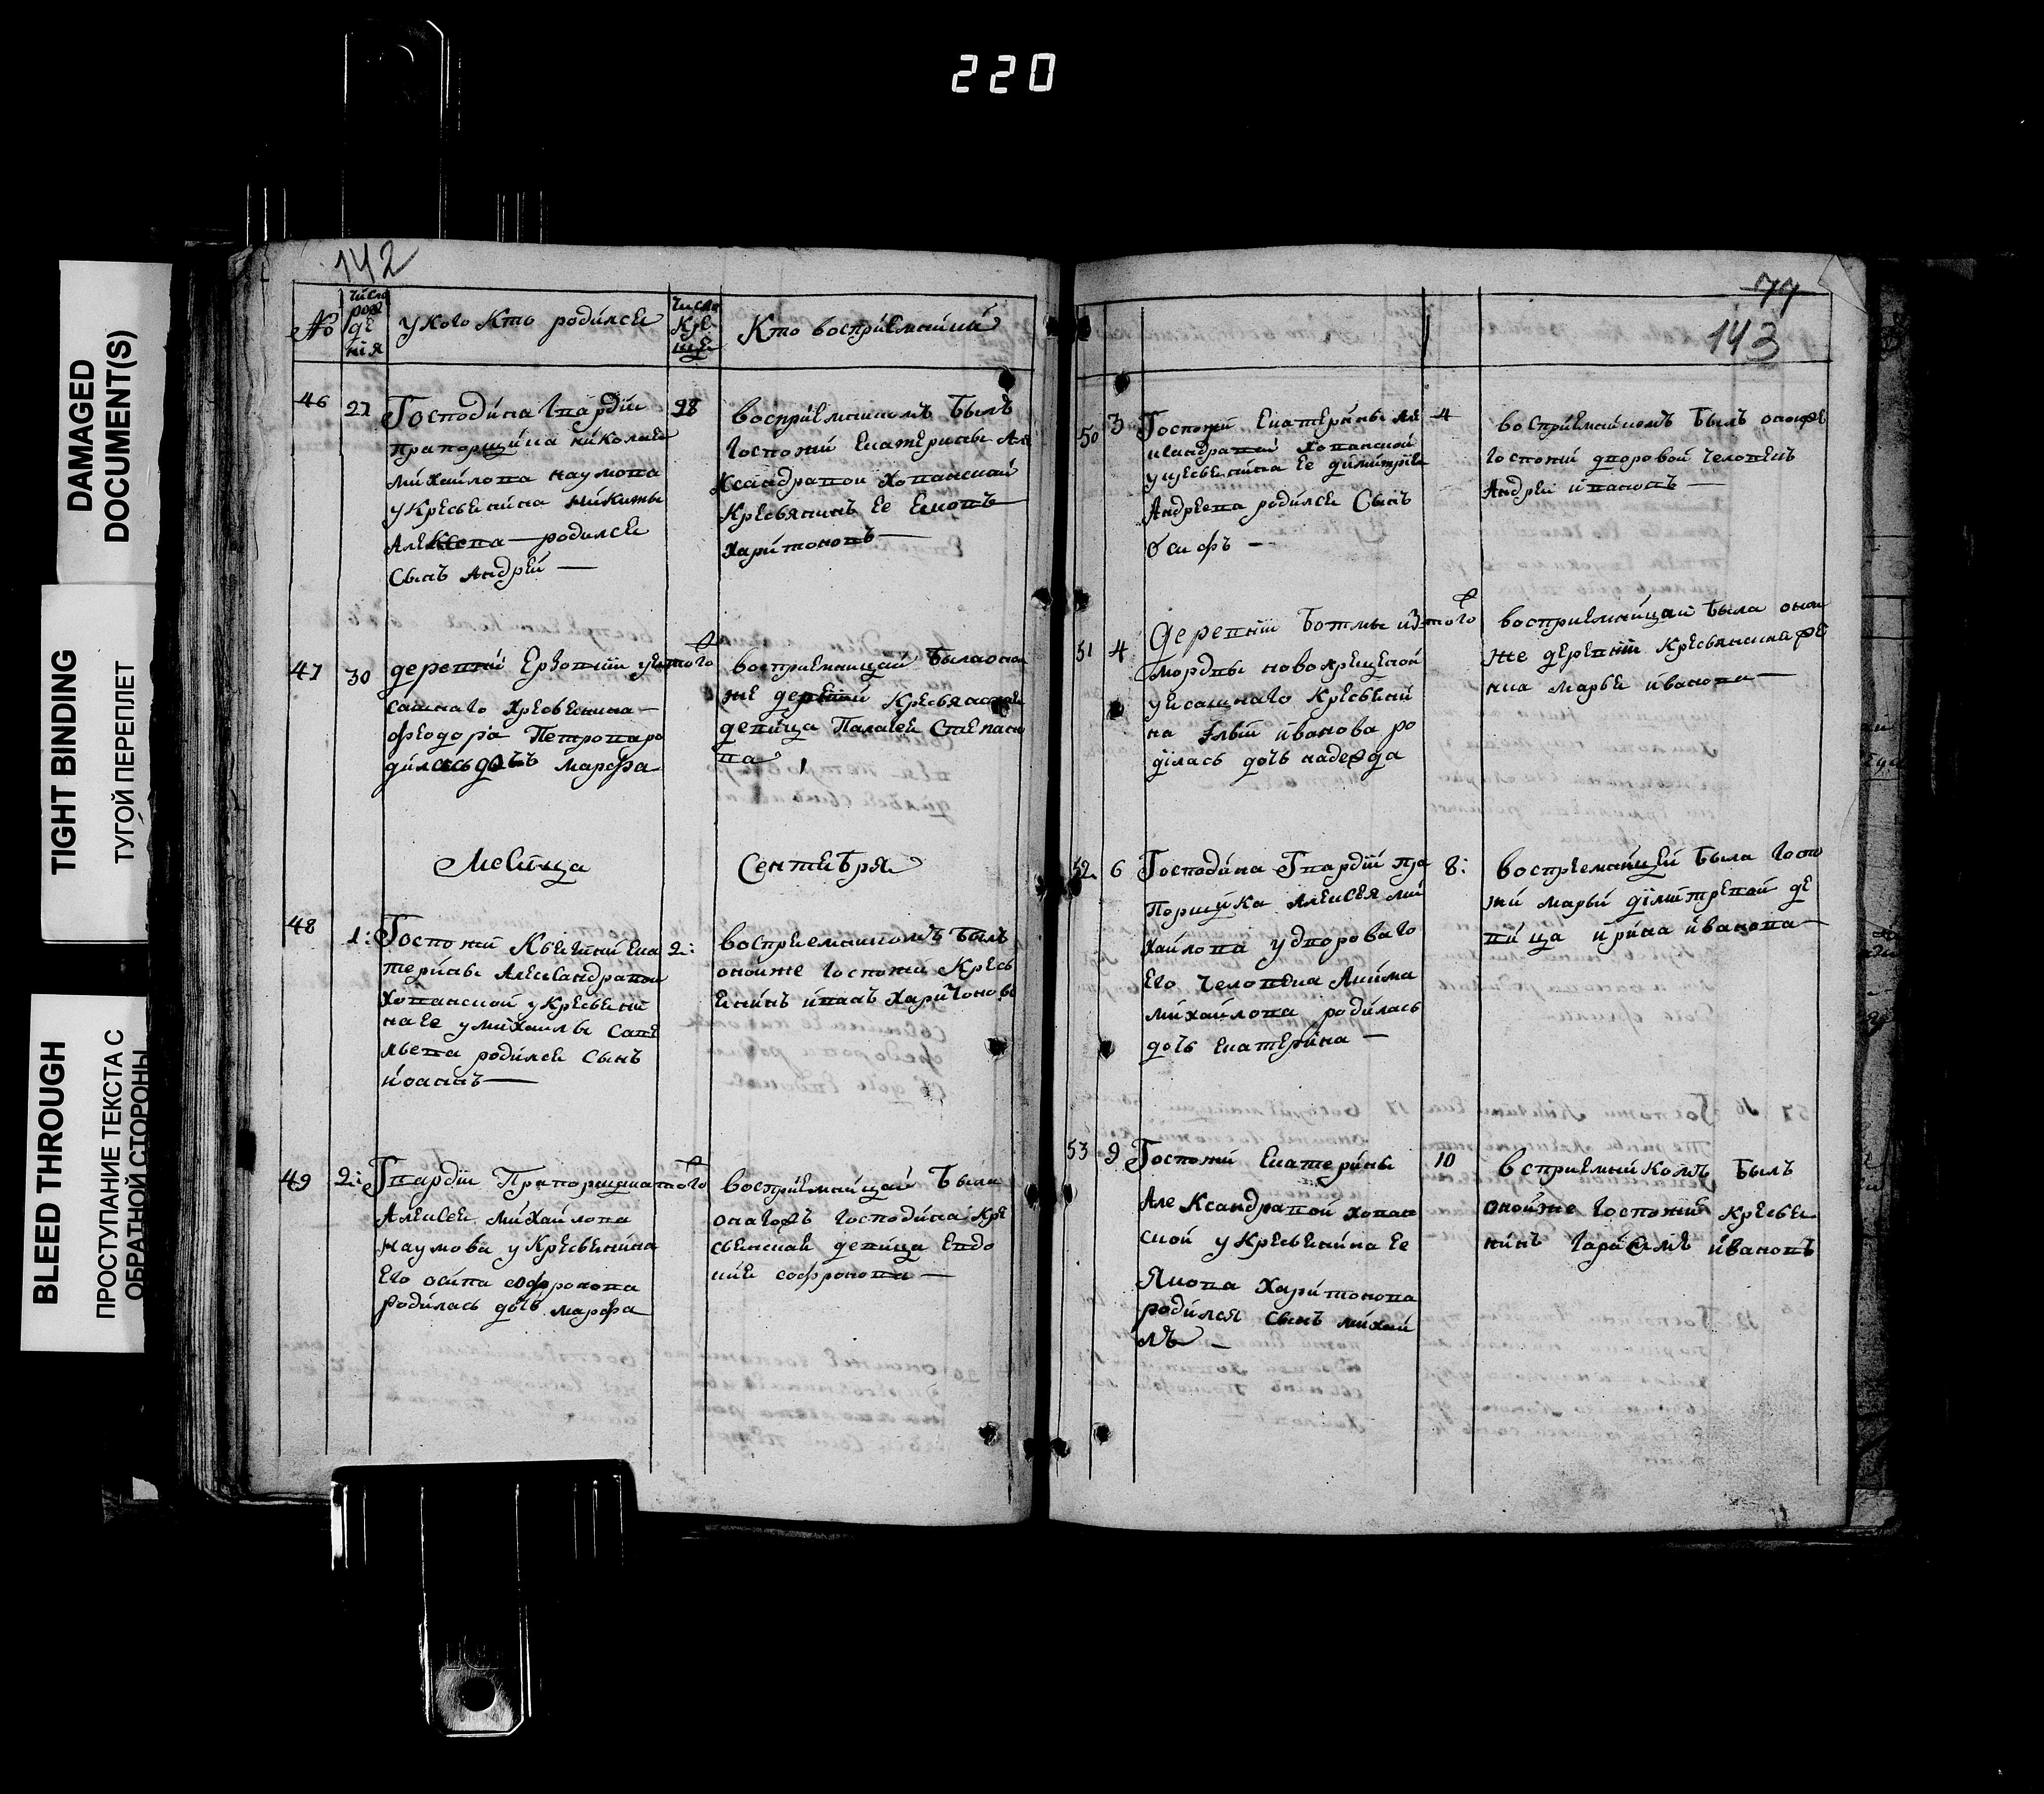 220
DAMAGED
DOCUMENT(S)
TIGHT BINDING
ТУГОЙ ПЕРЕПЛЕТ
BLEED THROUGH
ПРОСТУПАНИЕ ТЕКСТА С
ОБРАТНОЙ СТОРОНЫ
142
№
число рождения
у кого кто родился
число креще
Кто восприемники
46 27 28
Господина гвардии
прапорщика николая
михаилова наумова
у кресьенина никиты
алексева родился
сынъ андрей —
восприемникомъ былъ
госпожи екатерины але
ксандровои хованской
кресьянинъ ее
харитоновъ —
47 30 того
деревни
сашнаго кресьенина —
феодора петрова ро
дилась дочь марфа
восприемницай была оной
же деревни кресьянская
девица палагея степано
ва
месяца сентебря
48 1: 2:
Госпожи кнегини ека
терины александровои
хованской у кресьени
на ее у михаилы саве
льева родился сынъ
иоаннъ —
восприемникомъ былъ
оной же госпожи кресь
енинъ иванъ харитоновъ
49 2: того
гвардии прапорщика
алексея михаилова
наумова у кресьенина
его осипа софронова
родилась дочь марфа
восприемницай была
онагожъ господина кре
сьенская девица евдо
кия софронова —
77
143
50 3 4
Госпожи екатерины але
ксандровой хованской
у кресьенина ее димитрия
андреева родился сынъ
осифъ —
восприемникомъ былъ оной же
госпожи дворовой человекъ
андрей ивановъ —
51 4 того
деревни ботмы из
мордвы новокрещеной
у ясашнаго кресьени
на иванова ро
дилась дочь надежда
восприемницай была оной
же деревни кресьянская де
вица марья иванова —
52 6 8:
Господина гвардии пра
порщика алексея ми
хаилова у двороваго
его человека акима
михаилова родилась
дочь екатерина —
восприемницей была госпо
жи марьи димитревой де
вица ирина иванова —
53 9 10
Госпожи екатерины
александровой хован
ской у кресьенина ее
якова харитонова
родился сынъ михаи
лъ —
восприемникомъ былъ
оной же госпожи кресье
нинъ гарасимъ ивановъ